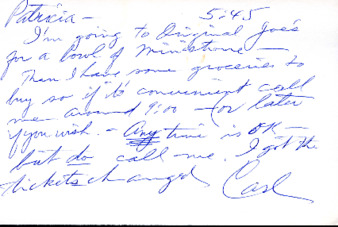 Patricia — 5:45
I'm going to Original Joe's
for a bowl of Minestrone —
Then I have some groceries to
buy so if it's convenient call
me around 9:00 — or later
if you wish. — Any time is OK —
but do call me. I got the
tickets changed Carl